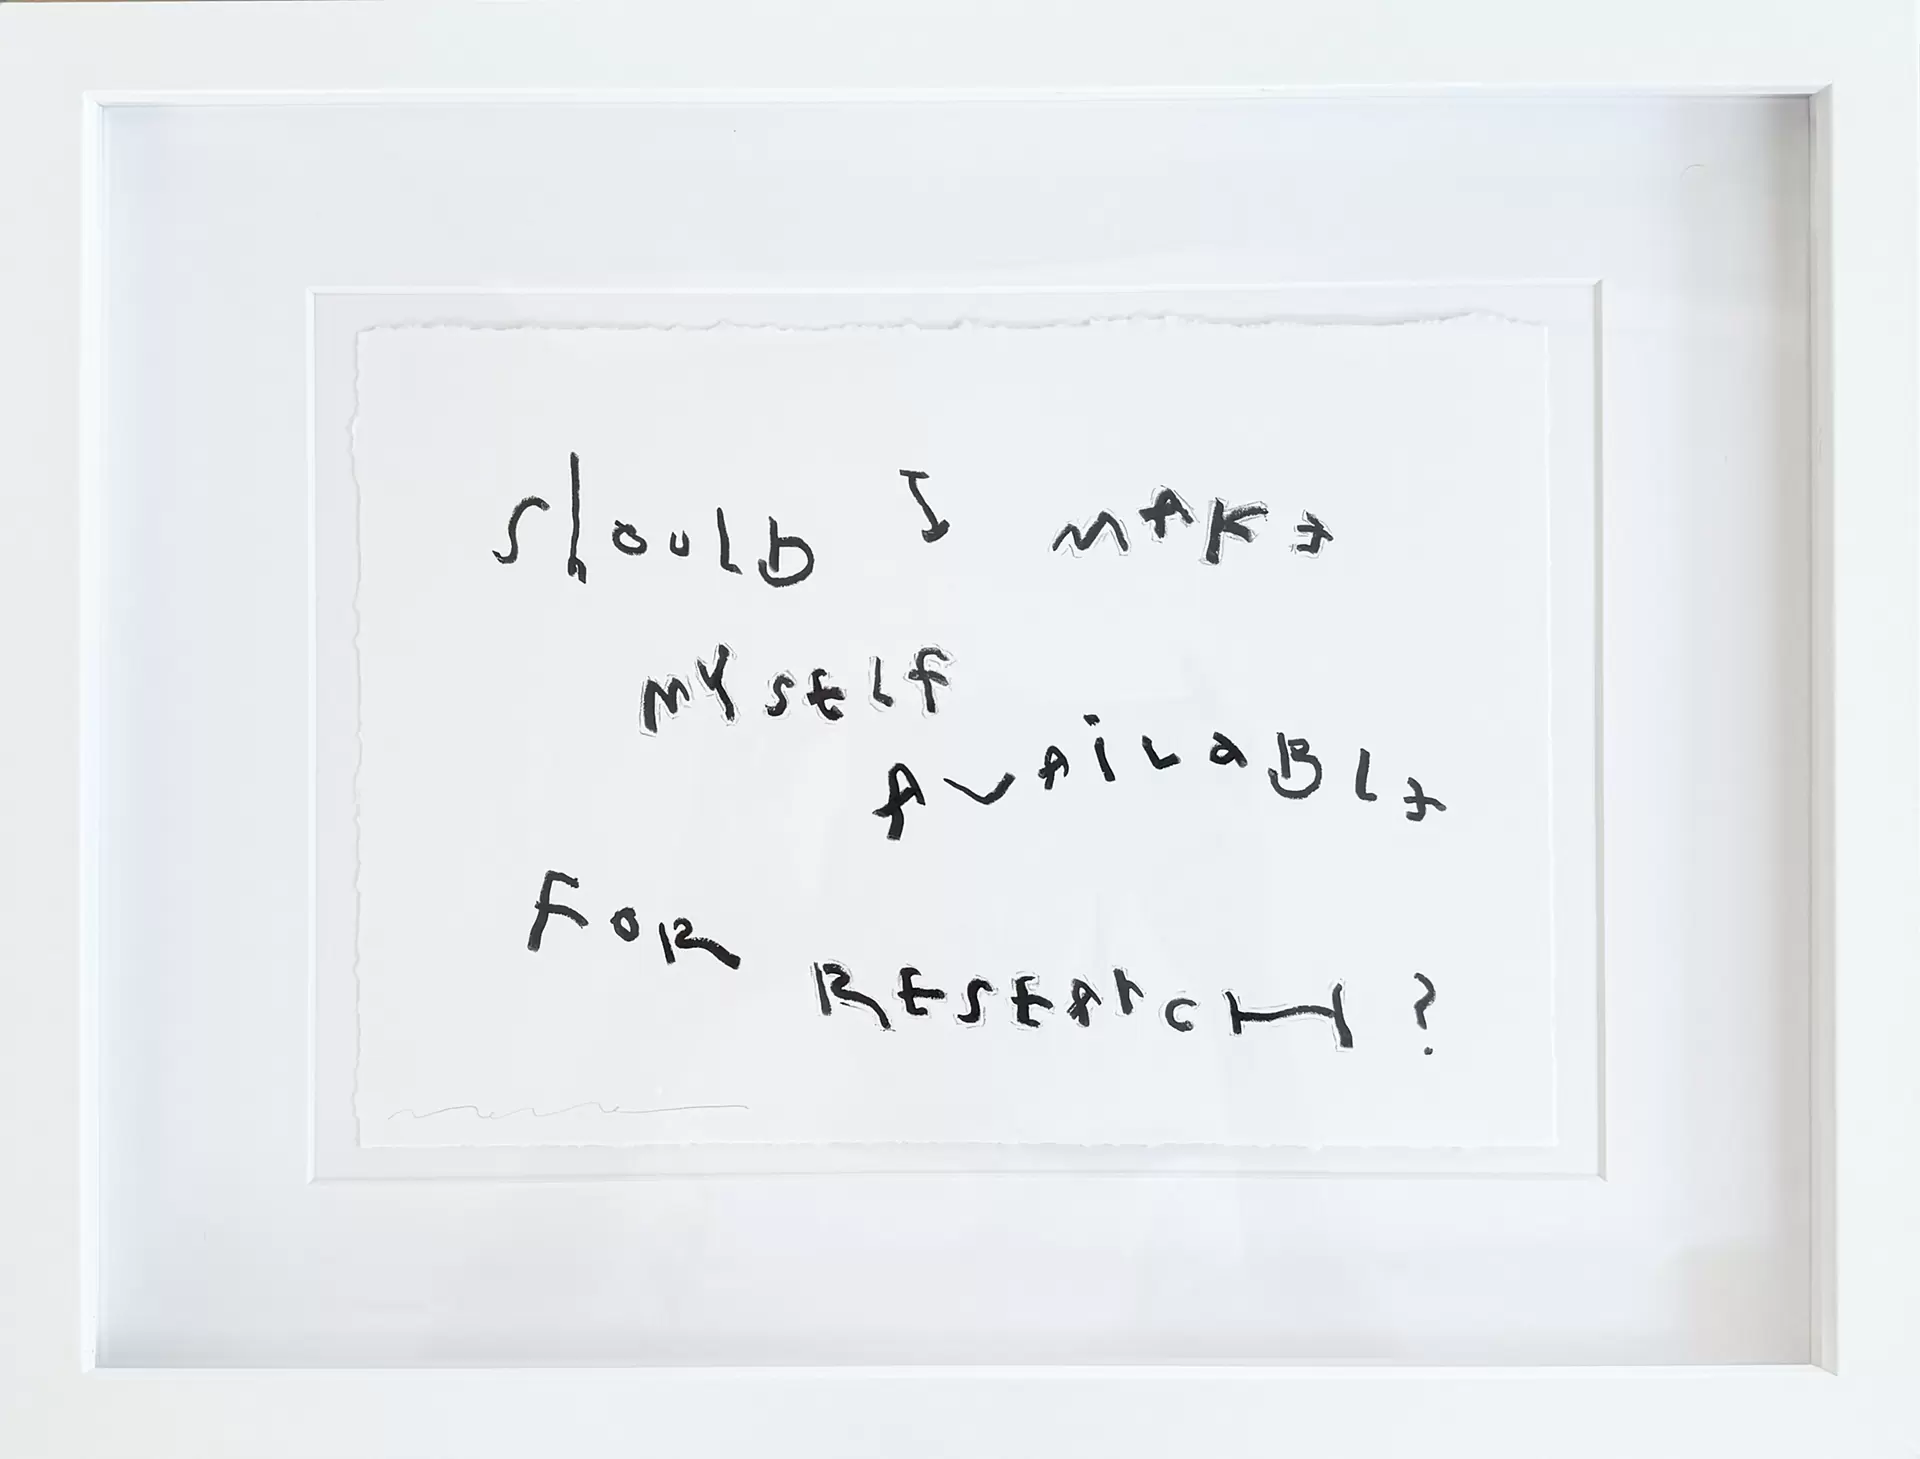 should I MAKE
MYSELF
AVAiLaBLE
FOR
RESEARCH?